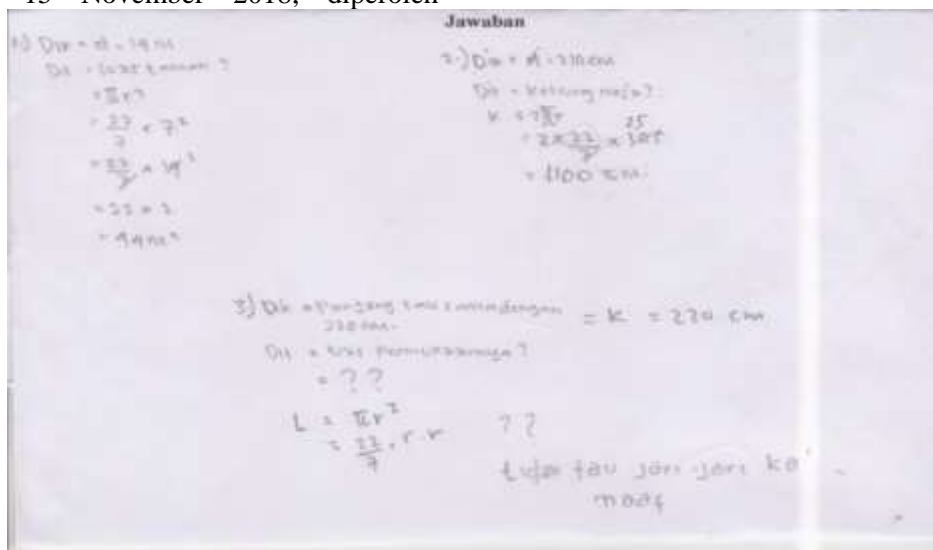 15 November 2018, diperoleh
Jawaban
1.) Dik = d = 14 m
Dit = luas taman ?
= πr²
= 22/7 × 7²
= 22/7 × 14²
= 22 × 2
= 44 m²
2.) Dik = d = 350 cm
Dit = keliling meja?
K = 2πr
= 2 × 22/7 × 25
= 1100 cm.
3) Dik = Panjang
220 cm. = K = 220 cm
Dit = luas Permukaannya ?
= ??
L = πr²
= 22/7 . r . r ??
tidak tau jari-jari ka'
maaf